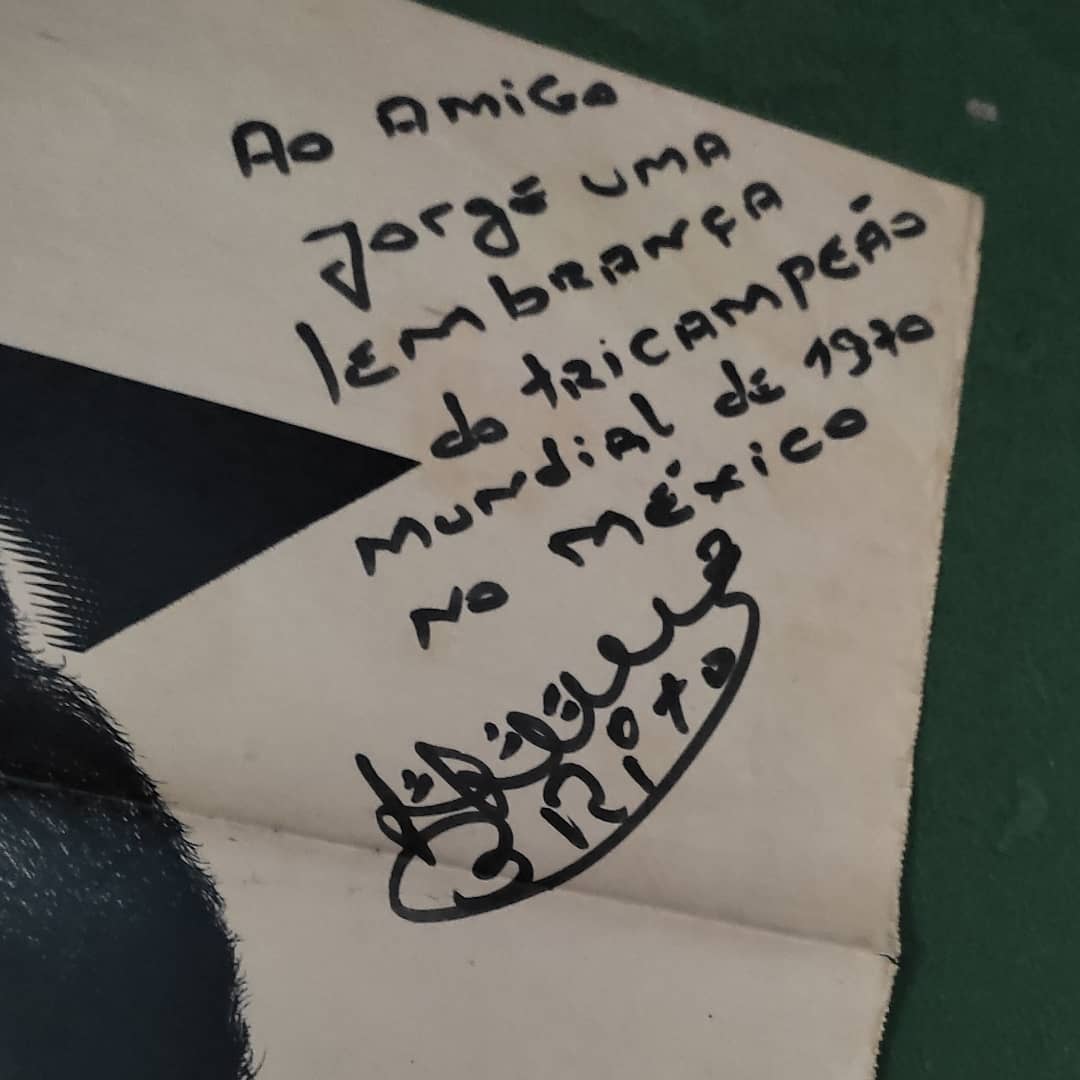 Ao AMiGo
Jorge UMA
lEMbRANÇA
do tRiCAMPEÃO
MUNdiAl dE 1970
No MÉXiCo